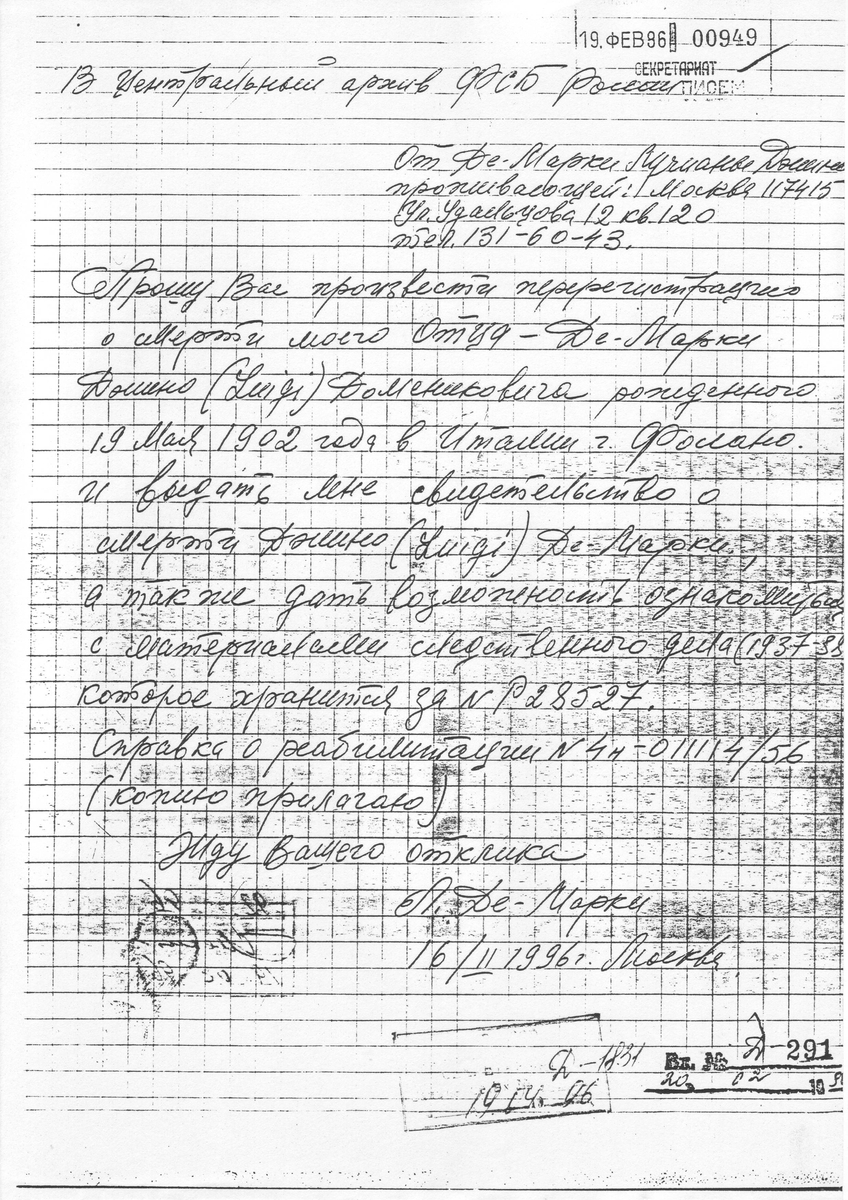 19. ФЕВ 96 00949
СЕКРЕТАРИАТ
ПИСЕМ
В Центральный архив ФСБ России
От Де-Марки Лучианы Джино
проживающей: Москва 117415
Ул. Удальцова 12 кв. 120
тел. 131-60-43.
Прошу Вас произвести перерегистрацию
о смерти моего Отца – Де-Марки
Джино (Luigi) Доменековича рожденного
19 Мая 1902 года в Италии г. Фосано.
и выдать мне свидетельство о
смерти Джино (Luigi) Де-Марки,
а так же дать возможность ознакомиться
с материалами следственного дела (1937-38
которое хранится за N Р28527.
Справка о реабилитации N 4н-011114/56
(копию прилагаю)
Жду Вашего отклика
Л. Де-Марки
16/II 1996г. Москва.
Д-1831
Вх. № Д-291
20. 02 19